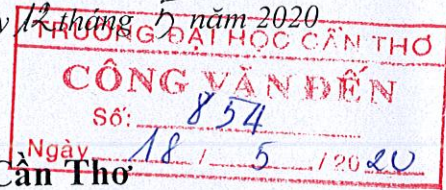 y 12 tháng 5 năm 2020
TRƯỜNG ĐẠI HỌC CẦN THƠ
CÔNG VĂN ĐẾN
Số: 854
Ngày 18 / 5 / 2020
Cần Thơ